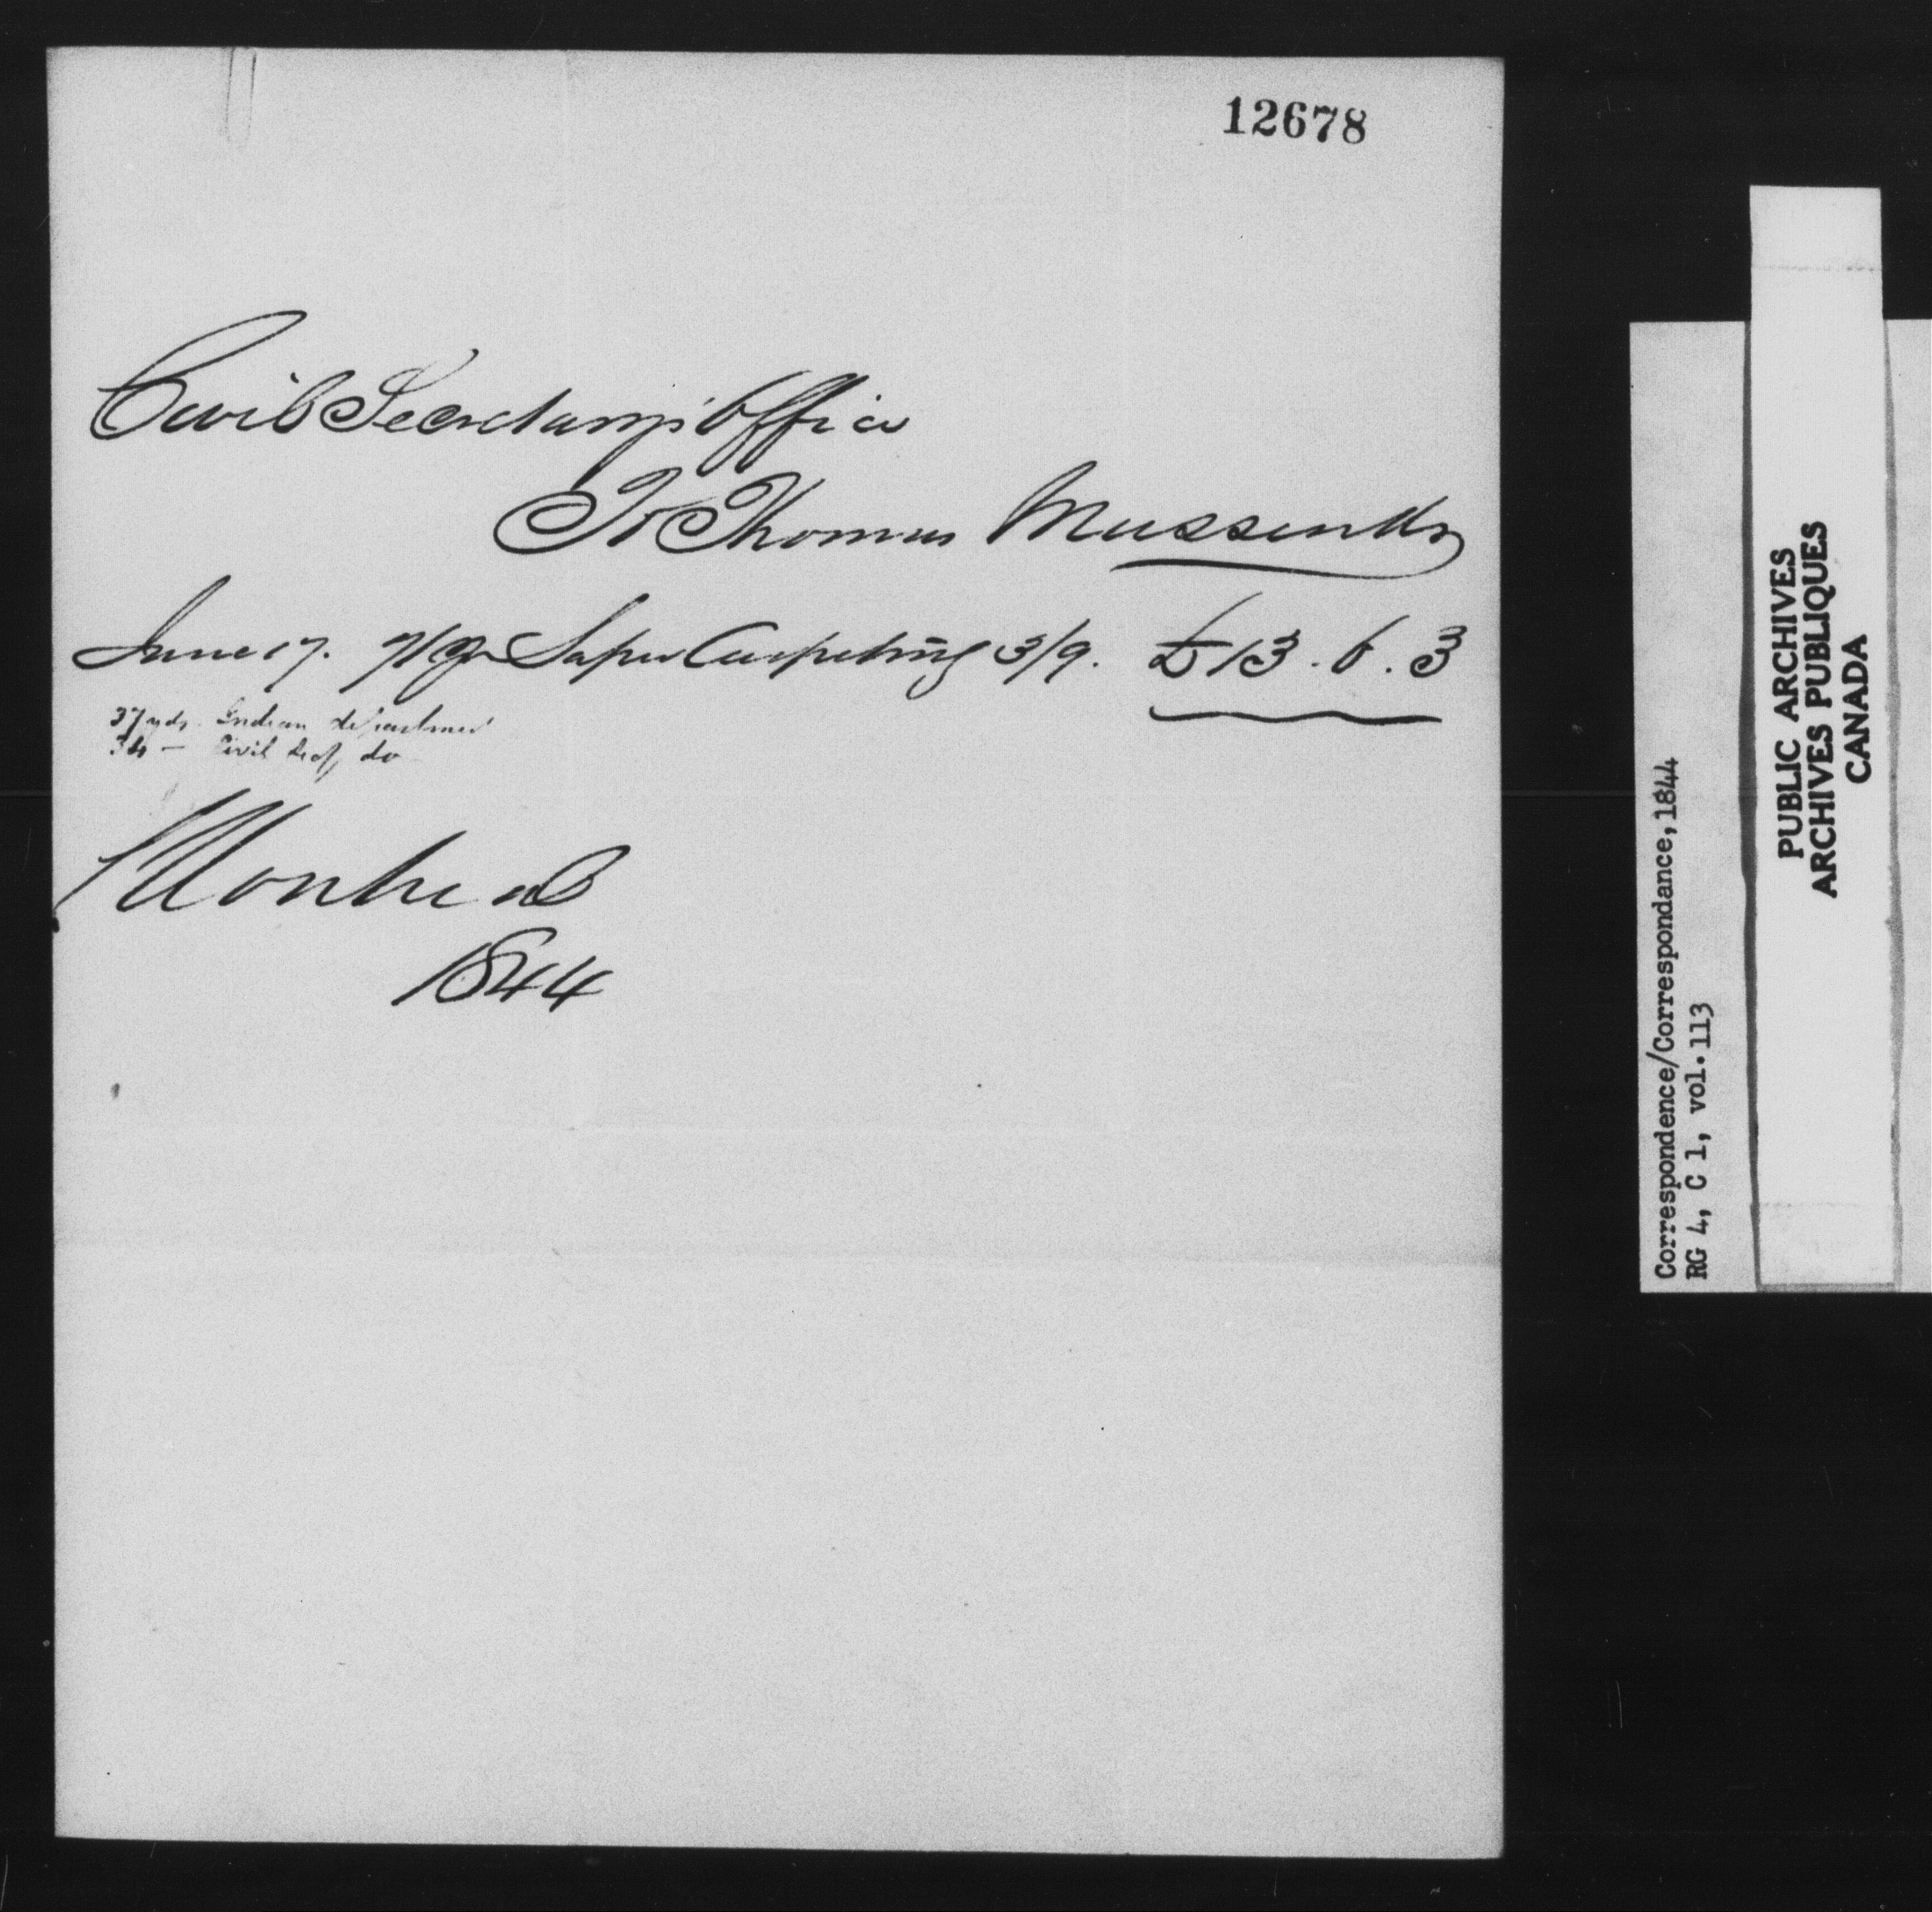 12678
Civil Secretarys Office
To Thomas Mussen Dr
June 17. 71 Yds Super Carpeting 3/9. £13.6.3
37 yds. Indian department
34 — Civil Sec'y do
Montreal
1844
Correspondence/Correspondance, 1844
RG 4, C 1, vol. 113
PUBLIC ARCHIVES
ARCHIVES PUBLIQUES
CANADA